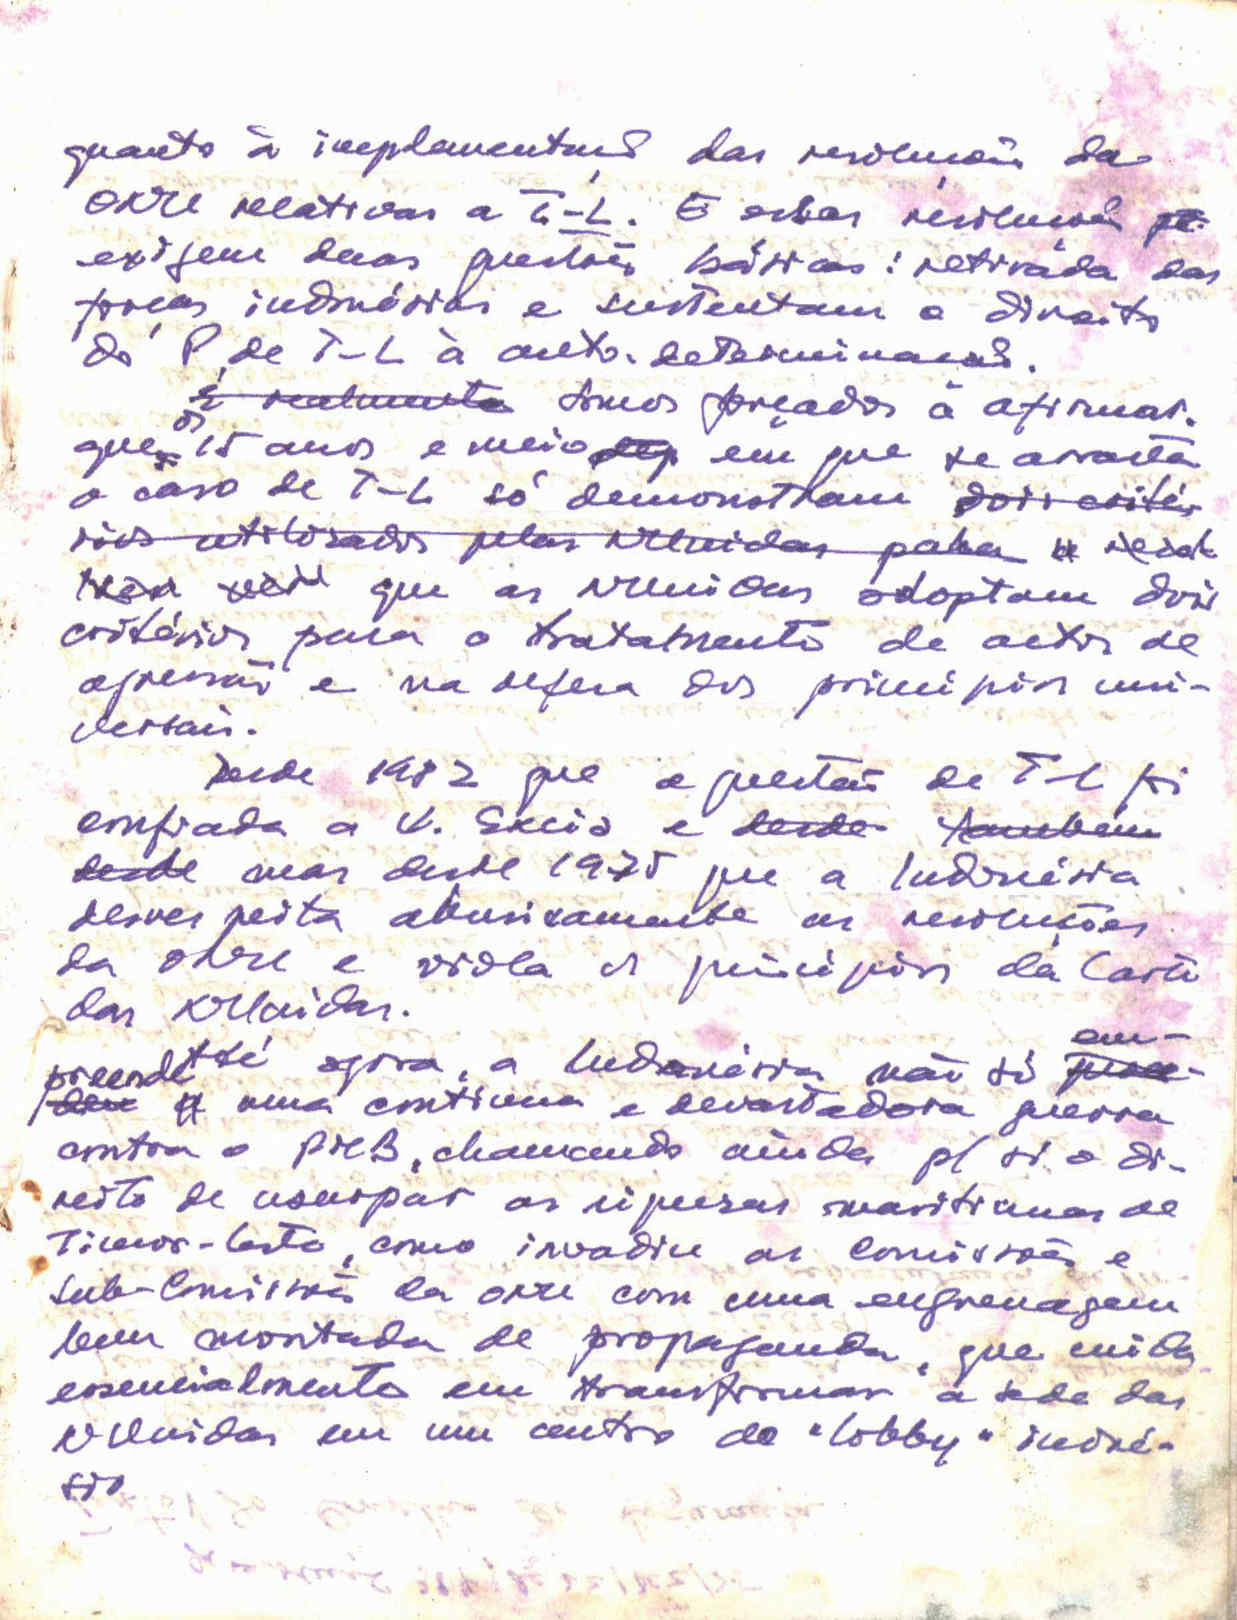 quanto à implementação das resoluções da
ONU relativas a T-L. E estas resoluções
exigem duas questões básicas: retirada das
forças indonésias e sustentam o direito
do P. de T-L à auto-determinação.
É realmente somos forçados à afirmar,
que os 15 anos e meio dep em que se arrasta
o caso de T-L só demonstram dois crité-
rios utilizados pelas NUnidas para
que as NUnidas adoptam dois
critérios para o tratamento de actos de
agressão e na defesa dos princípios uni-
versais.
Desde 1982 que a questão de T-L foi
confiada a V. Excia e desde também
desde mas desde 1975 que a Indonésia
desrespeita abusivamente as resoluções
da ONU e viola os princípios da Carta
das NUnidas.
Até agora, a Indonésia não só em-
preende uma contínua e devastadora guerra
contra o , chamando ainda p/ si o di-
reito de usurpar as riquezas marítimas de
Timor-Leste, como invadiu as Comissões e
Sub-Comissões da ONU com uma engrenagem
bem montada de propaganda, que cuida
essencialmente em transformar a sede das
NUnidas em um centro de "lobby" indoné-
sio